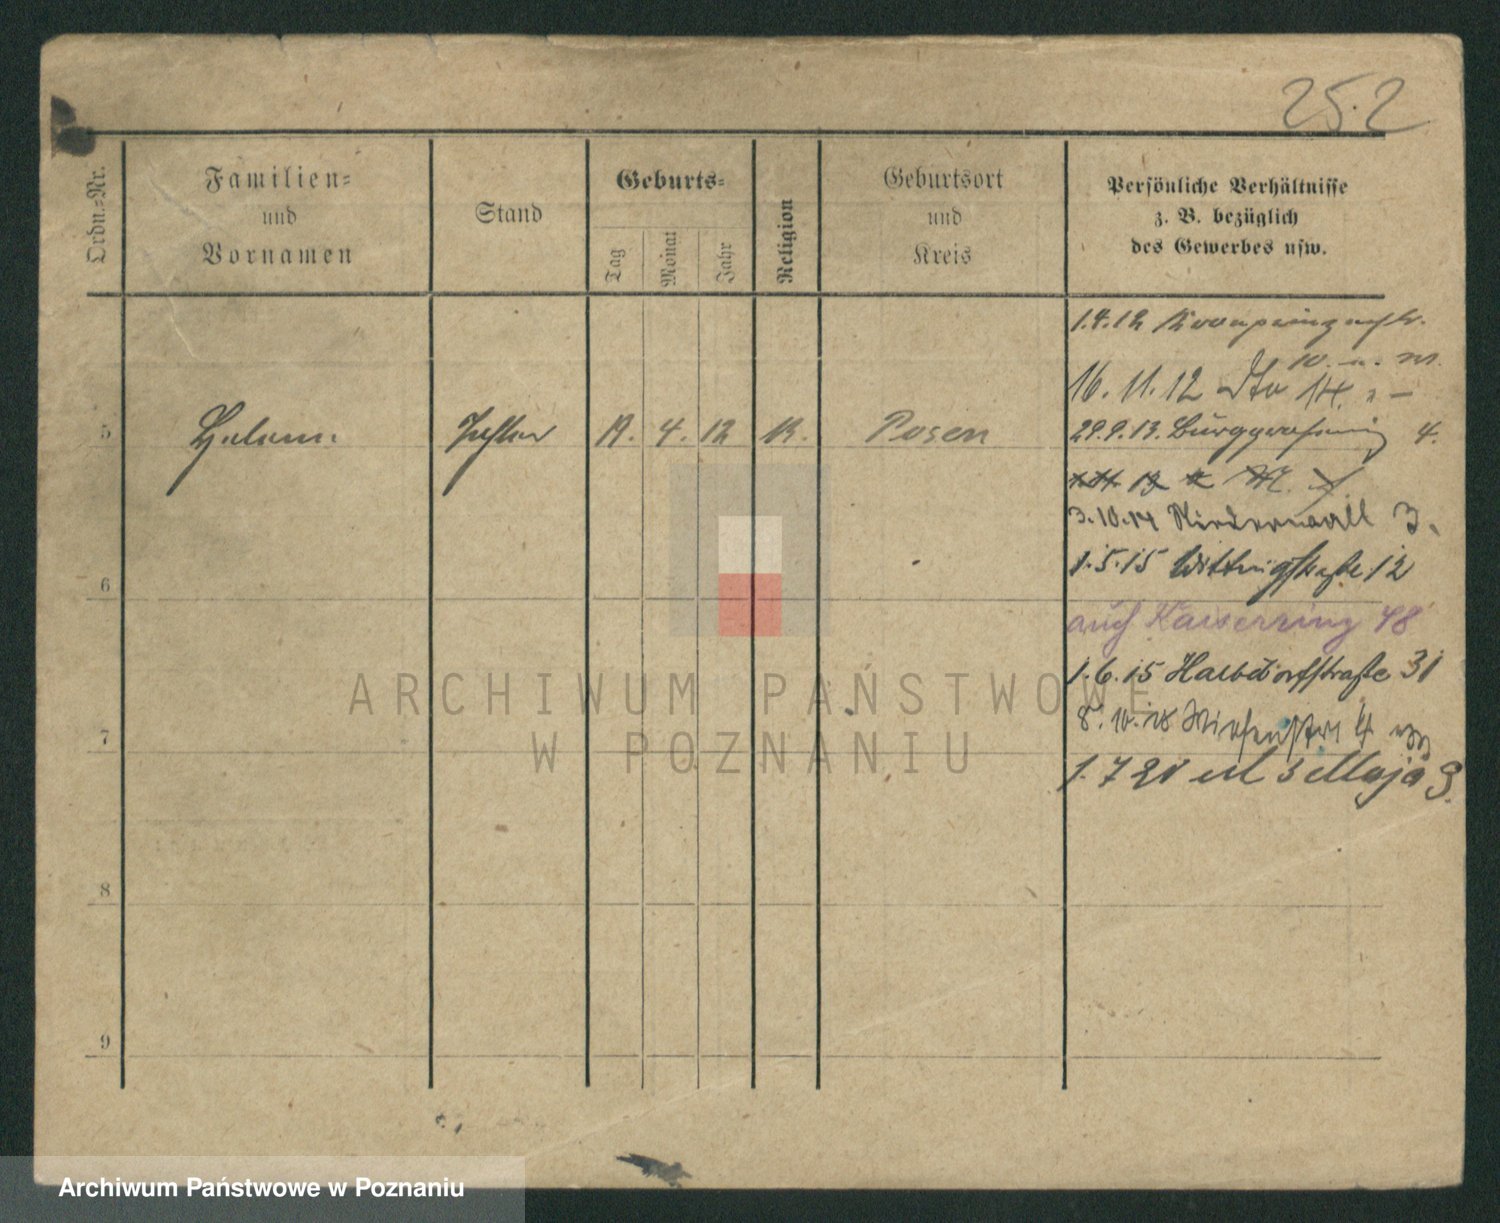 252
Ordn.-Nr.
Familien-
und
Vornamen
Stand
Geburts-
Tag
Monat
Jahr
Religion
Geburtsort
und
Kreis
Persönliche Verhältnisse
z. B. bezüglich
des Gewerbes usw.
1.4.12 Kronprinzenstr.
16. 11. 12 dto 14.
5 Helene Tochter 19. 4. 12 K. Posen
29.9.13. 4.
3.10.14 Niederwall 3.
1.5.15 12
6
auch Kaiserring 48
1.6.15 Halbdorfstraße 31
8.10.18 Wiesenstr. 4
7
1.7 21 ul 3 Maja 3.
8
9
ARCHIWUM PAŃSTWOWE
W POZNANIU
Archiwum Państwowe w Poznaniu